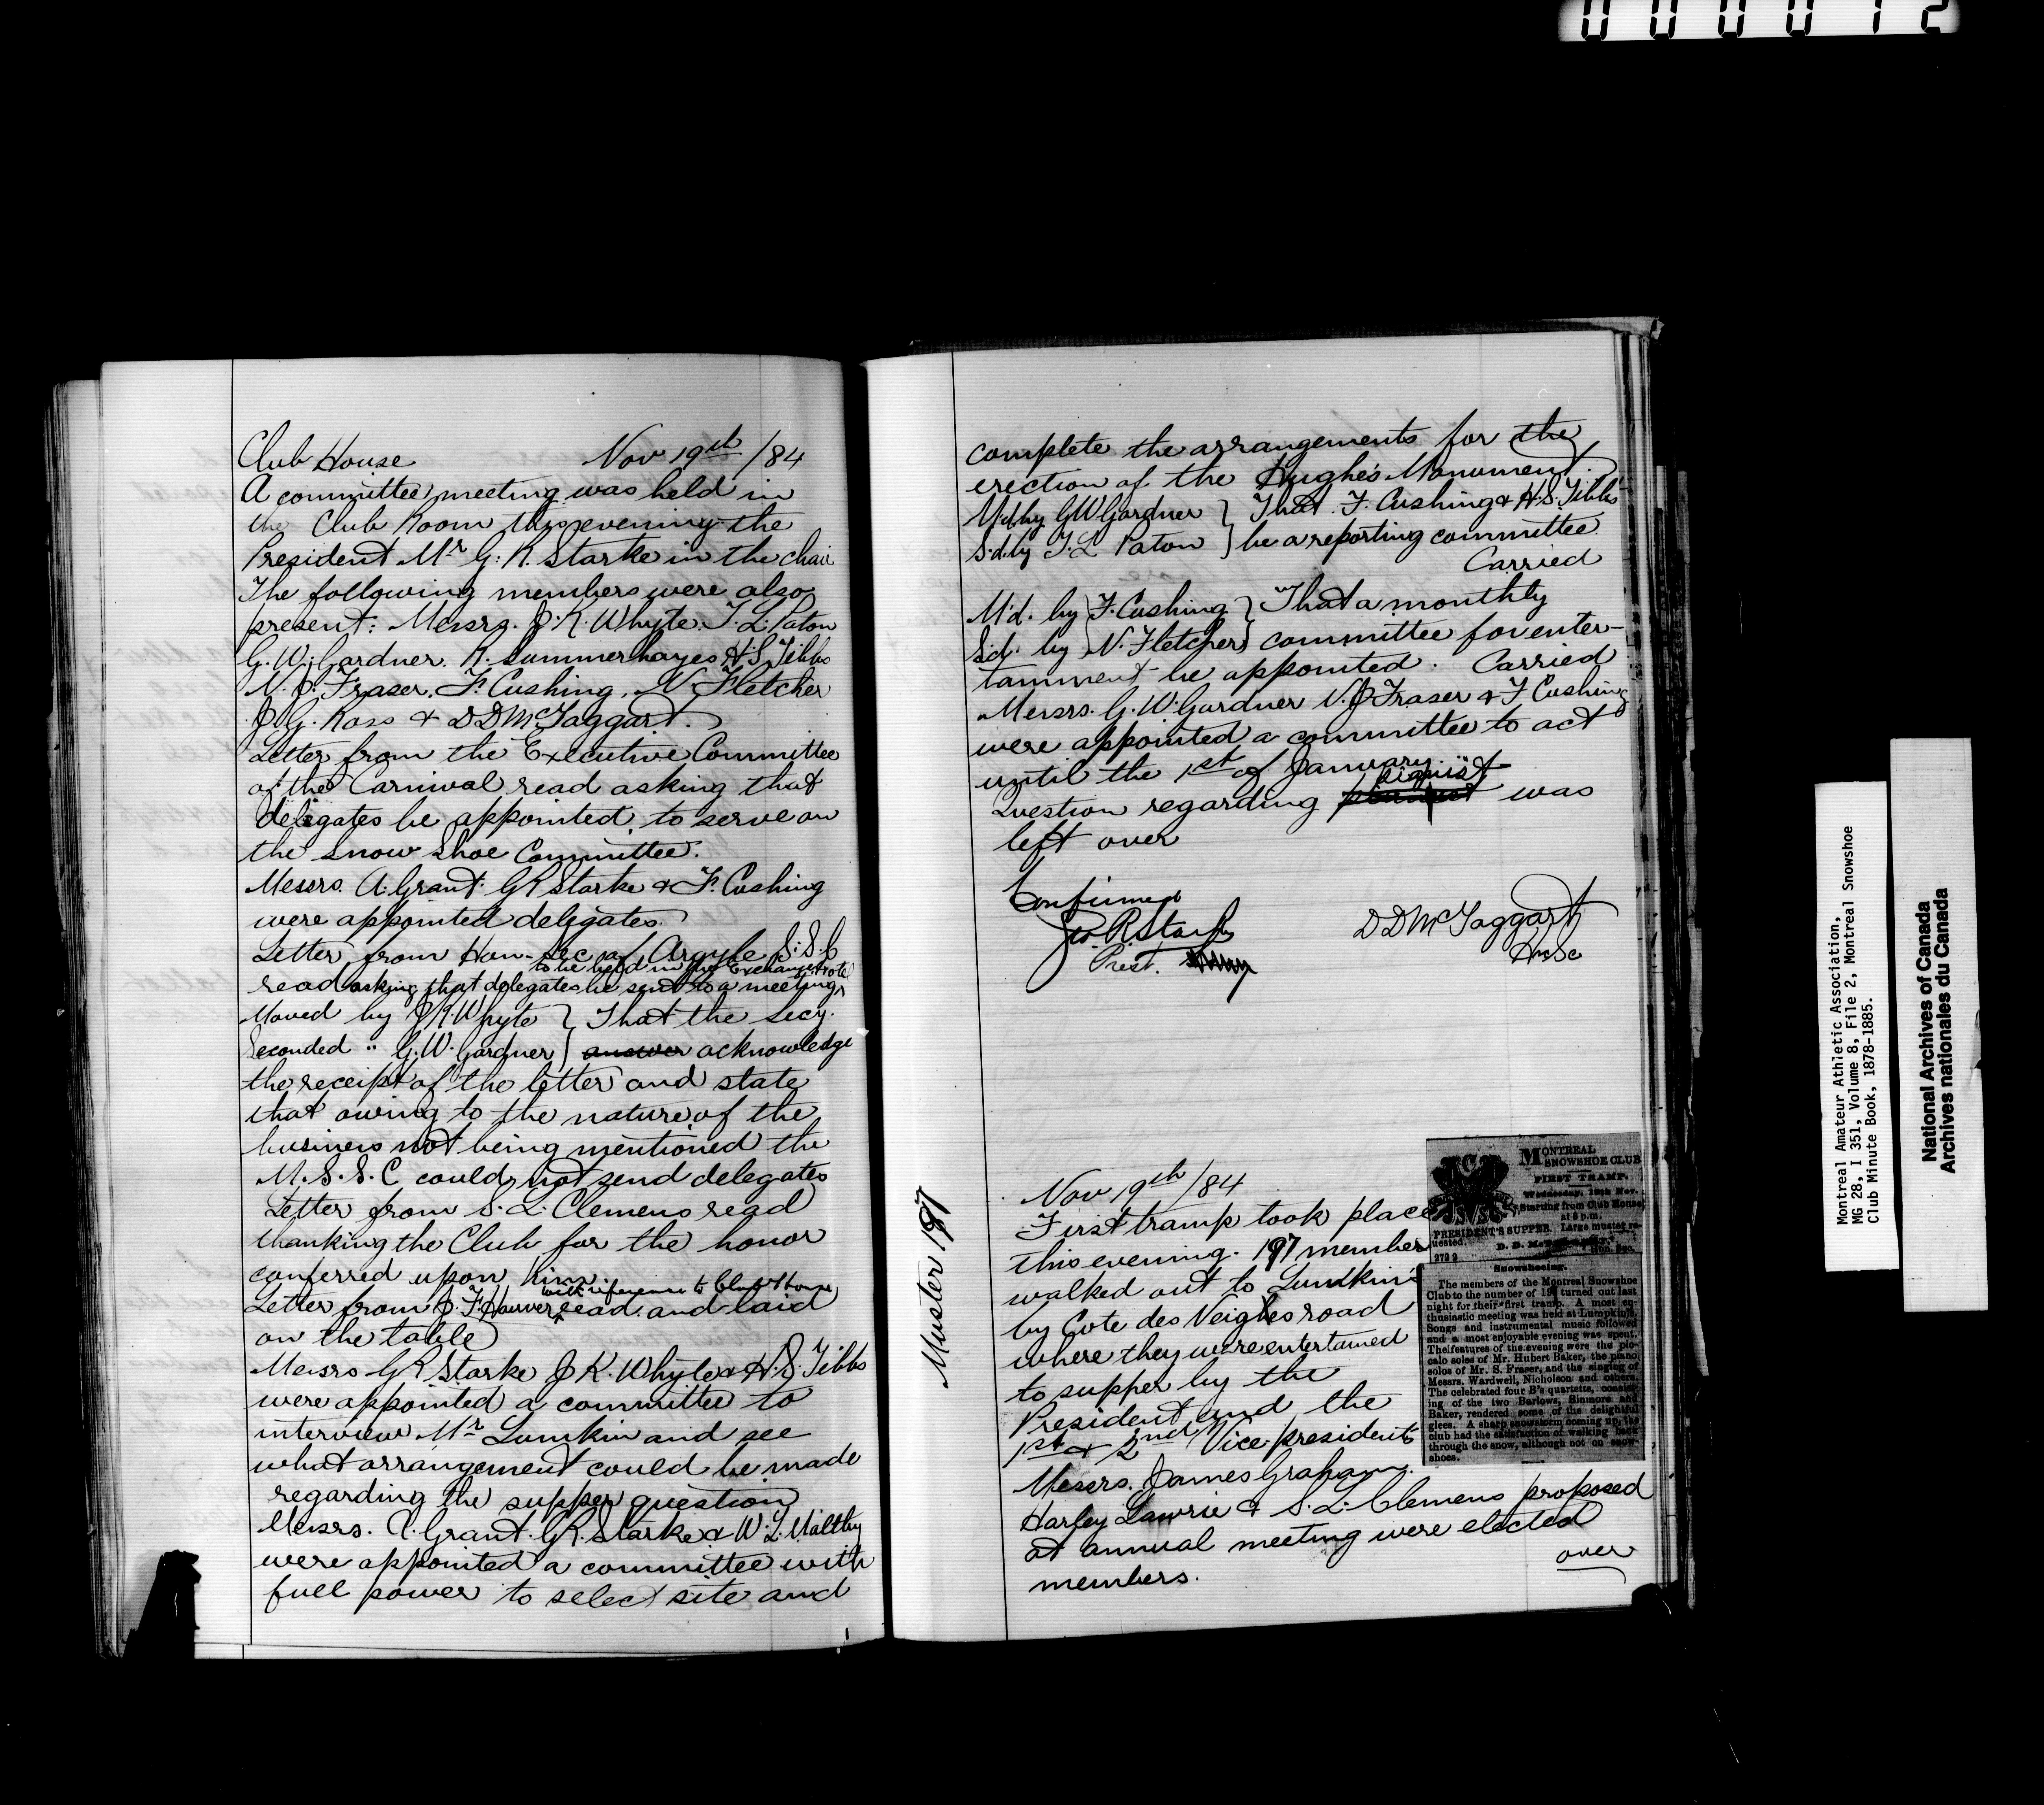 000012
Club House Nov 19th /84
A committee meeting was held in
the Club Room this evening the
President Mr G. R. Starke in the chair
The following members were also
present: Messrs. J. K. Whyte. T. L. Paton
G. W. Gardner. R. Summerhayes H. S. Tibbs
N. J. Fraser. F. Cushing. N Fletcher
J. G. Ross & D D McTaggart.
Letter from the Executive Committee
of the Carnival read asking that
deligates be appointed to serve on
the Snow Shoe Committee.
Messrs. A. Grant. G R Starke & F. Cushing
were appointed delegates.
Letter from Hon-Sec of Argyle S.S.C
to be held in the Exchange Hotel
read asking that delegates be sent to a meeting
Moved by J K Whyte } That the secy.
Seconded " G. W. Gardner } answer acknowledge
the receipt of the letter and state
that owing to the nature of the
business not being mentioned the
M. S. S. C could not send delegates
Letter from S. L. Clemens read
thanking the Club for the honor
conferred upon him.
with reference to Club House
Letter from J. F. read and laid
on the table
Messrs G R Starke J K. Whyte & H. S. Tibbs
were appointed a committee to
interview Mr Lumkin and see
what arrangement could be made
regarding the supper question
Messrs. A. Grant. G R. Starke & W. L. Maltby
were appointed a committee with
full power to select site and
complete the arrangements for the
erection of the Hughe's Monument.
M'd by G W Gardner } That F. Cushing & H. S. Tibbs
S'd. by T. L Paton } be a reporting committee.
Carried
M'd. by F. Cushing } That a monthly
S'd. by N. Fletcher } committee for enter-
tamment be appointed. Carried
Messrs. G. W. Gardner N. J Fraser & F Cushing
were appointed a committee to act
until the 1st of January.
Question regarding pianist was
left over
Confirmed
Geo. R. Starke
Prest.
D D McTaggart
Hn Sc
Muster 197
Nov 19th /84
First tramp took place
this evening. 197 member
walked out to Lumkin's
by Cote des Neighes road
where they were entertained
to supper by the
President and the
1st & 2nd Vice presidents
Messrs. James Graham.
Harley Lawrie & S. L. Clemens proposed
at annual meeting were elected
members.
over
MONTREAL
SNOWSHOE CLUB
FIRST TRAMP.
Wednesday, 19th Nov.
Starting from Club House
at 8 p.m.
PRESIDENT'S SUPPER. Large muster re-
quested.
D. D. McTAGGART,
Hon. Sec.
Snowshoeing.
The members of the Montreal Snowshoe
Club to the number of 197 turned out last
night for their first tramp. A most en-
thusiastic meeting was held at Lumpkin's.
Songs and instrumental music followed
and a most enjoyable evening was spent.
The features of the evening were the pic-
calo solos of Mr. Hubert Baker, the piano
solos of Mr. S. Fraser, and the singing of
Messrs. Wardwell, Nicholson and others.
The celebrated four B's quartette, consist-
ing of the two Barlows, Binmore and
Baker, rendered some of the delightful
glees. A sharp snowstorm coming up, the
club had the satisfaction of walking back
through the snow, although not on snow-
shoes.
Montreal Amateur Athletic Association,
MG 28, I 351, Volume 8, File 2, Montreal Snowshoe
Club Minute Book, 1878-1885.
National Archives of Canada
Archives nationales du Canada